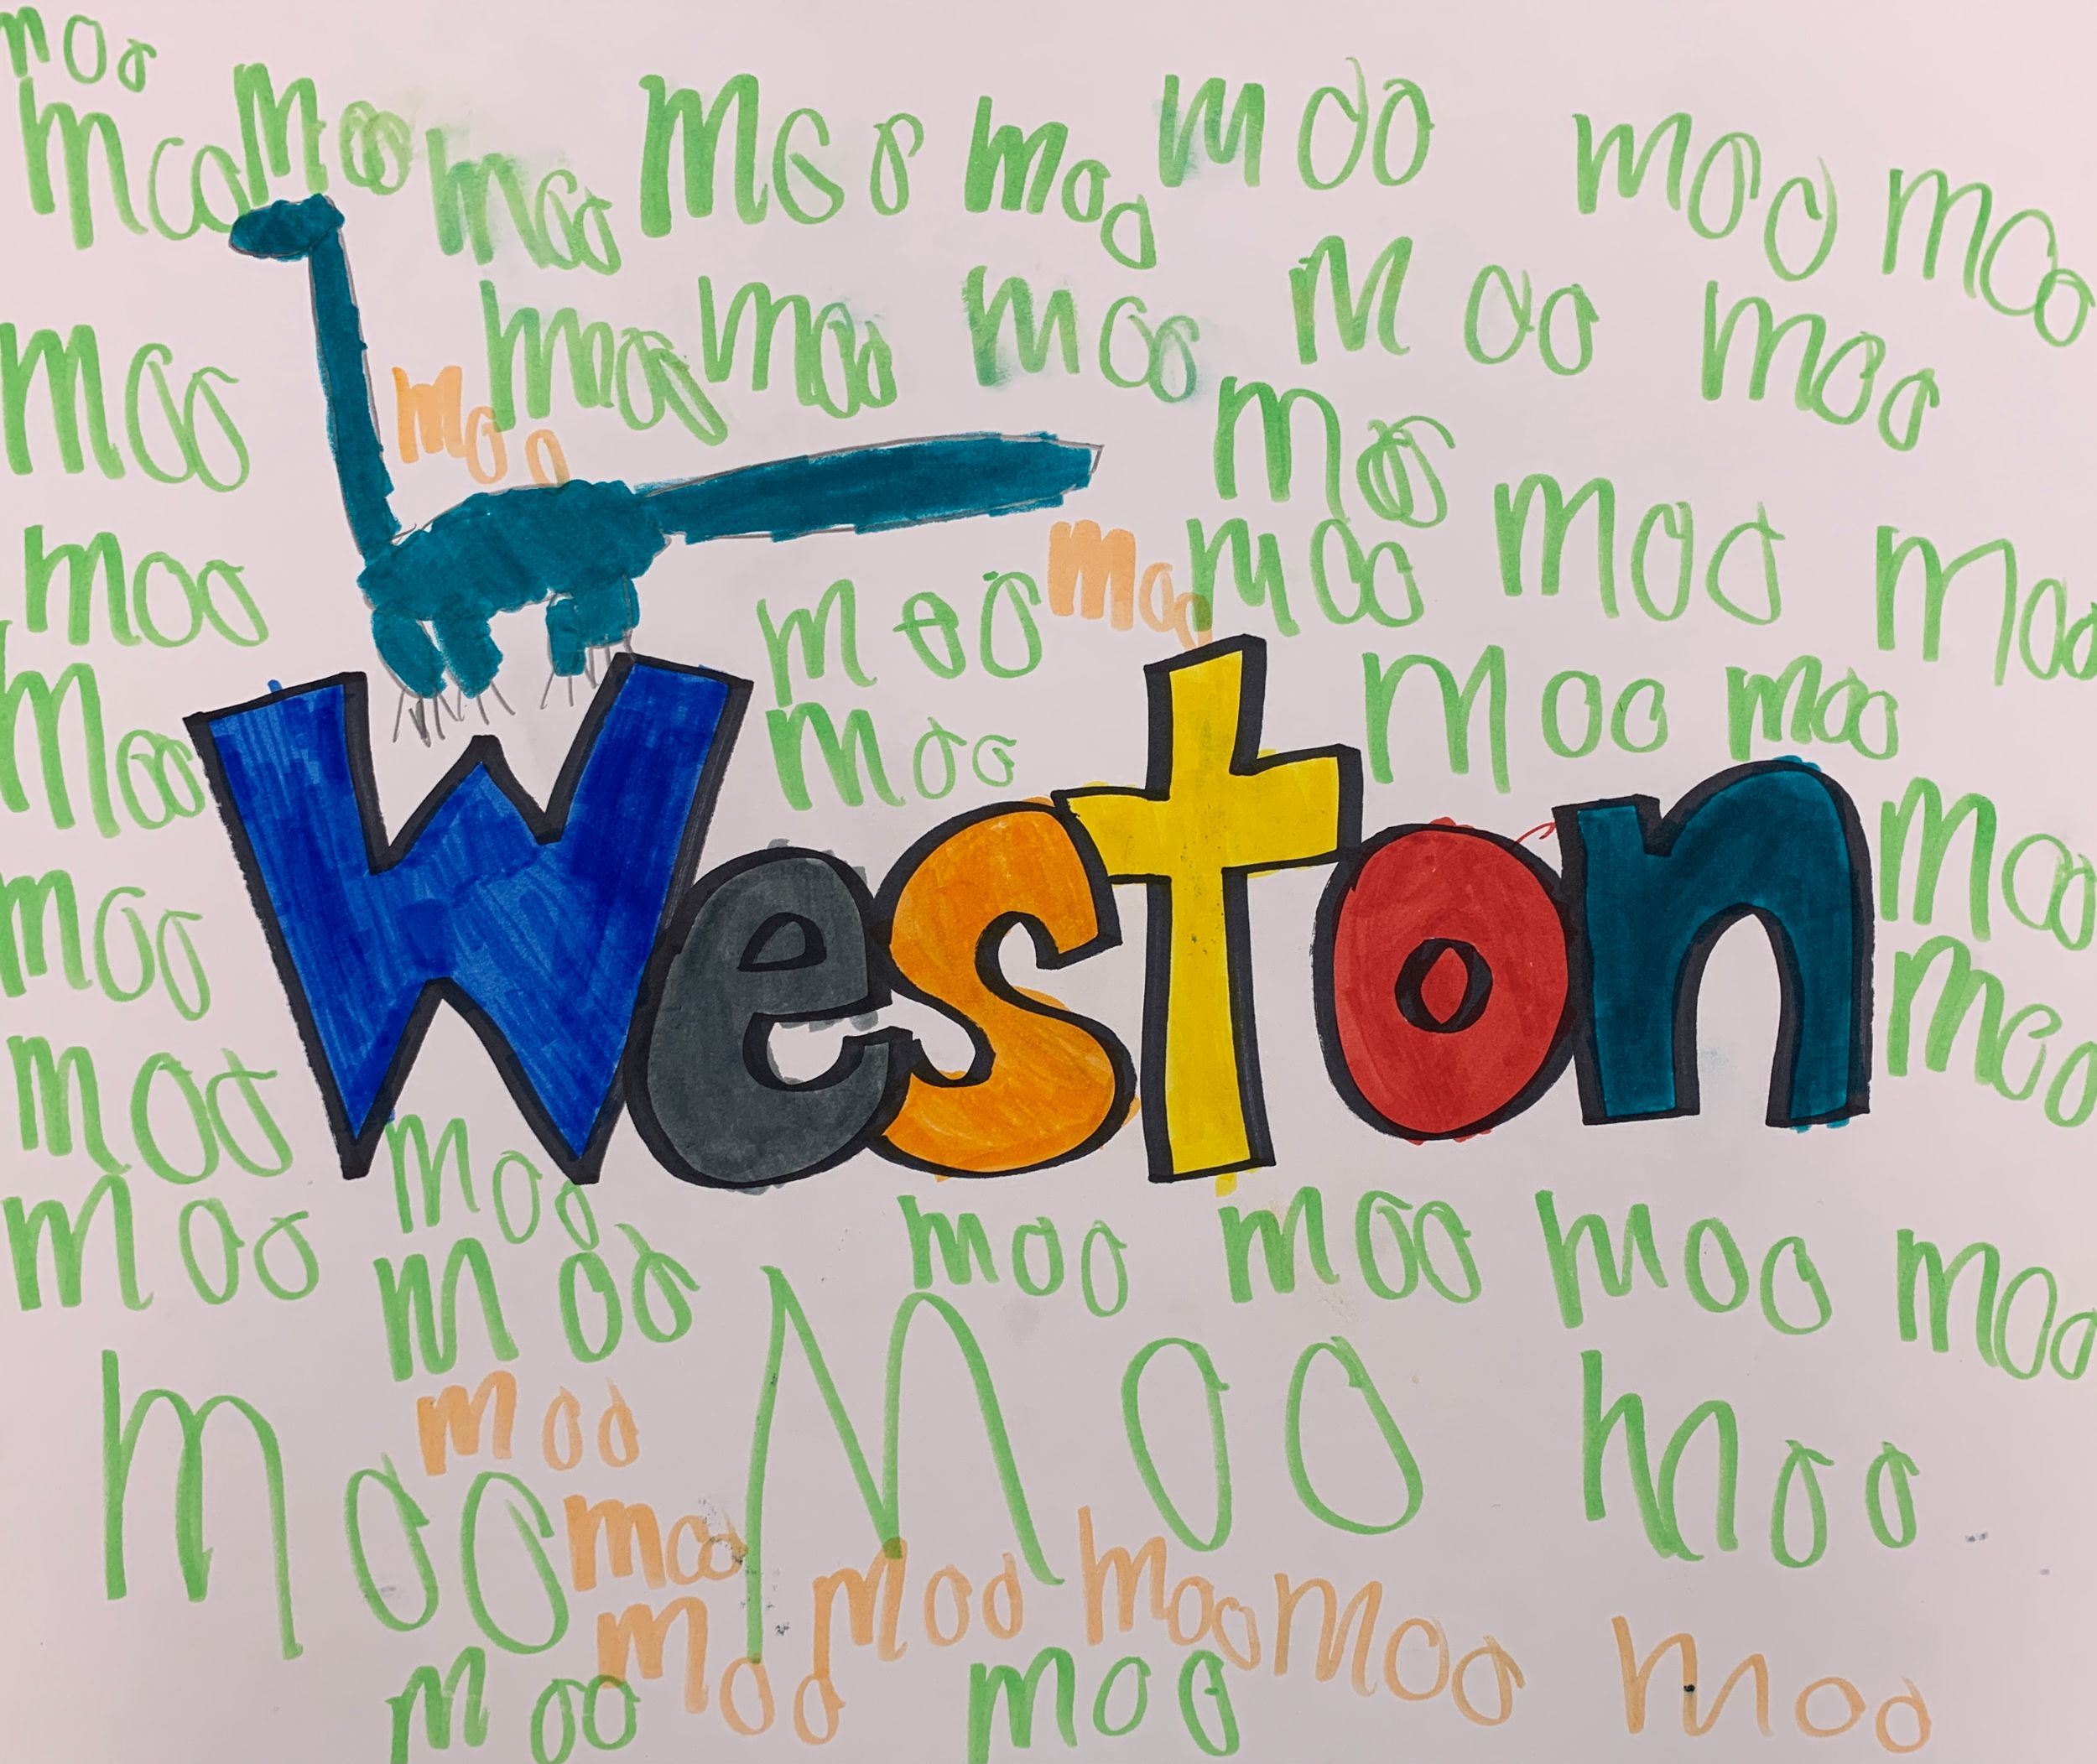 moo
moo moo moo moo moo moo moo moo
moo moo moo moo moo moo
moo moo
moo
moo moo moo moo moo moo
moo moo moo moo
Weston
moo
moo
moo
moo
moo moo
moo moo moo moo moo moo
moo Moo moo
moo
moo
moo moo moo moo
moo
moo moo